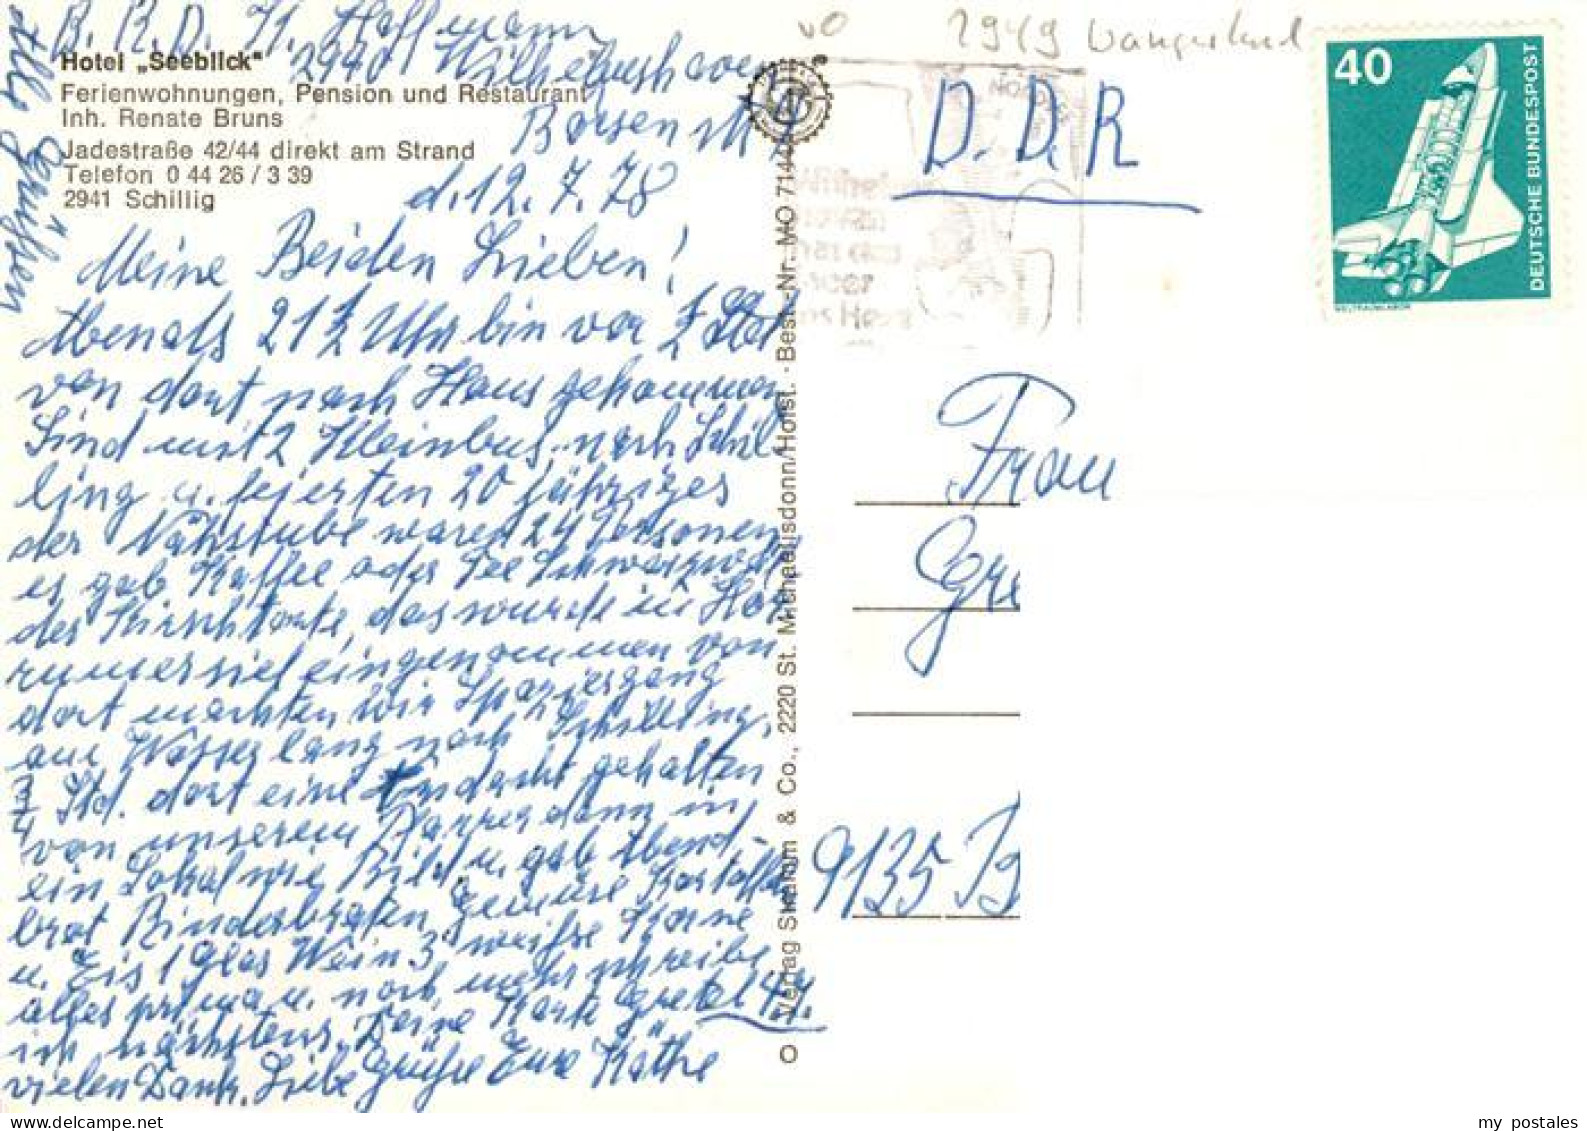 B. R. D. K. Hoffmann
2940 Wilhelmshaven
Hotel „Seeblick"
Ferienwohnungen, Pension und Restaurant
Inh. Renate Bruns
Jadestraße 42/44 direkt am Strand
Telefon 0 44 26 / 3 39
2941 Schillig
d. 12. 7. 78
Meine Beiden Lieben!
Abends 21 1/2 Uhr bin vor 1/2 Std
von dort nach Haus gekommen
Sind mit 2 Kleinbus nach Schil
ling u. feierten 20 jähriges
der Nähstube waren 24 Personen
es gab Kaffee oder Tee Schwarzwäl
der Kirschtorte, das wurde in Hok
rumersiel eingenommen von
dort machten wir Spaziergang
am Wasser lang nach Schilling,
3/4 Std. dort eine Andacht gehalten
von unserem Pfarrer dann in
ein Lokal wie Bild u. gab Abend-
brot Rinderbraten, Gemüse Kartoffeln
u. Eis 1 Glas Wein 3 weiße Korne
alles prima u. noch mehr schreibe
ich nächstens. Deine Karte Gretel 4.7.
vielen Dank. Liebe Grüße Eure Käthe
Alle grüssen
Verlag Stramm & Co., 2220 St. Michaelisdonn/Holst. · Best.-Nr. MO 7144
2949 Wangerland
D. D. R
40
DEUTSCHE BUNDESPOST
WELTRAUMLABOR
Frau
Gre
9135 B
my postales